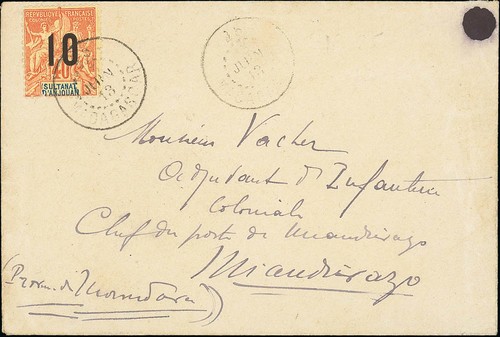 RÉPUBLIQUE FRANÇAISE
10
SULTANAT
D'ANJOUAN
JUIN
13
MADAGASCAR
Monsieur Vacher
Adjudant d'Infanterie
Coloniale
Chef du poste de Miandrivazo
Miandrivazo
(Provin. de Morondava)